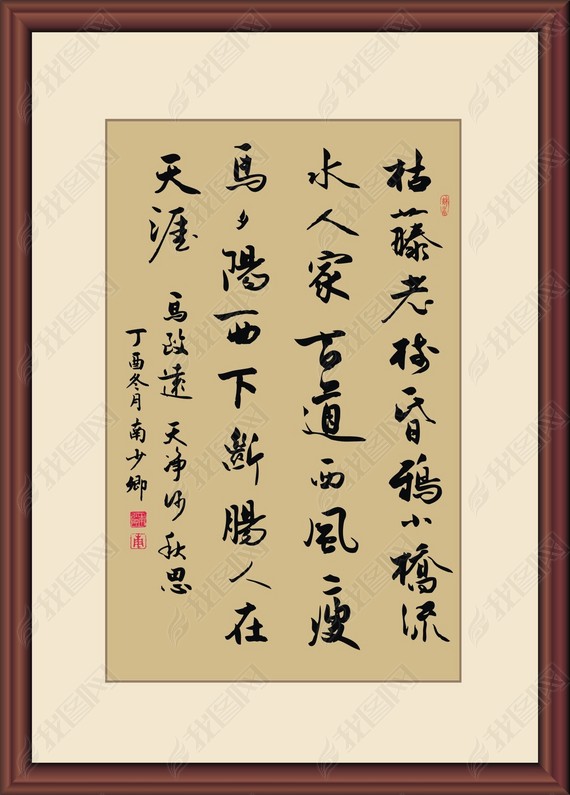 枯藤老树昏鴉小橋流
水人家古道西風瘦
馬夕陽西下斷腸人在
天涯 馬致遠 天净沙 秋思
丁酉冬月南少卿
我图网